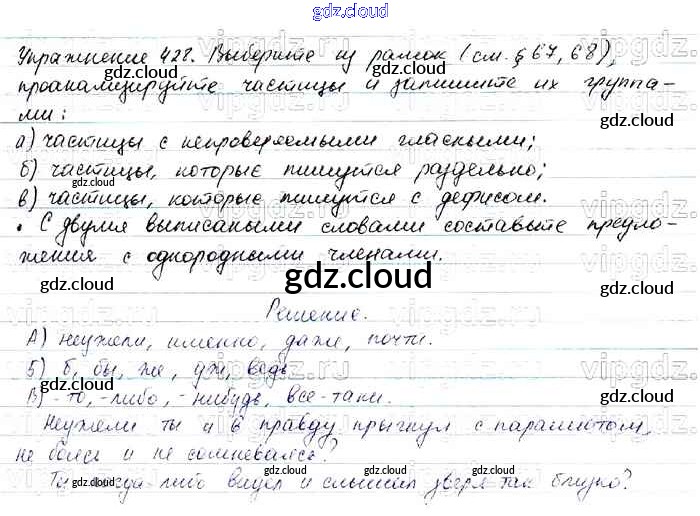 gdz.cloud
Упражнение 428. Выберите из рамок (см. § 67, 68),
проанализируйте частицы и запишите их группа-
ми:
а) частицы с непроверяемыми гласными;
б) частицы, которые пишутся раздельно;
в) частицы, которые пишутся с дефисом.
• С двумя выписаными словами составьте предло-
жения с однородными членами.
gdz.cloud
Решение.
А) неужели, именно, даже, почти.
Б) б, бы, же, уж, ведь
В) -то, -либо, -нибудь, все-таки.
Неужели ты и в правду прыгнул с парашютом,
не боялся и не сомневался?
Ты когда-либо видел и слышал зверя так близко?